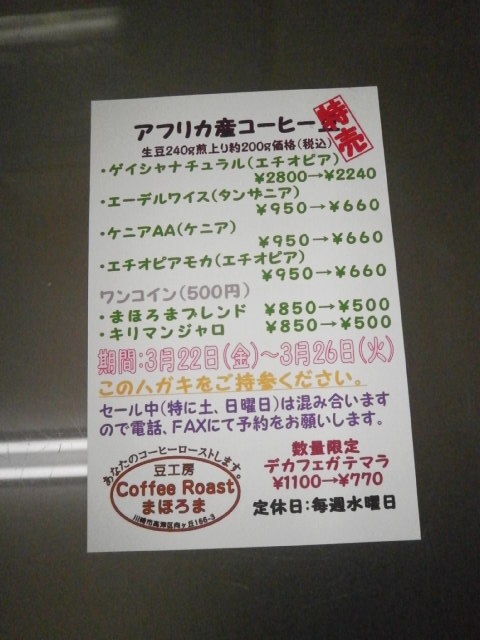 アフリカ産コーヒー豆
特売
生豆240g煎上り約200g価格(税込)
・ゲイシャナチュラル(エチオピア)
¥2800→¥2240
・エーデルワイス(タンザニア)
¥950→¥660
・ケニアAA(ケニア)
¥950→¥660
・エチオピアモカ(エチオピア)
¥950→¥660
ワンコイン(500円)
・まほろまブレンド ¥850→¥500
・キリマンジャロ ¥850→¥500
期間:3月22日(金)~3月26日(火)
このハガキをご持参ください。
セール中(特に土、日曜日)は混み合います
ので電話、FAXにて予約をお願いします。
あなたのコーヒーローストします。
豆工房
Coffee Roast
まほろま
川崎市高津区向ヶ丘166-3
数量限定
デカフェガテマラ
¥1100→¥770
定休日:毎週水曜日